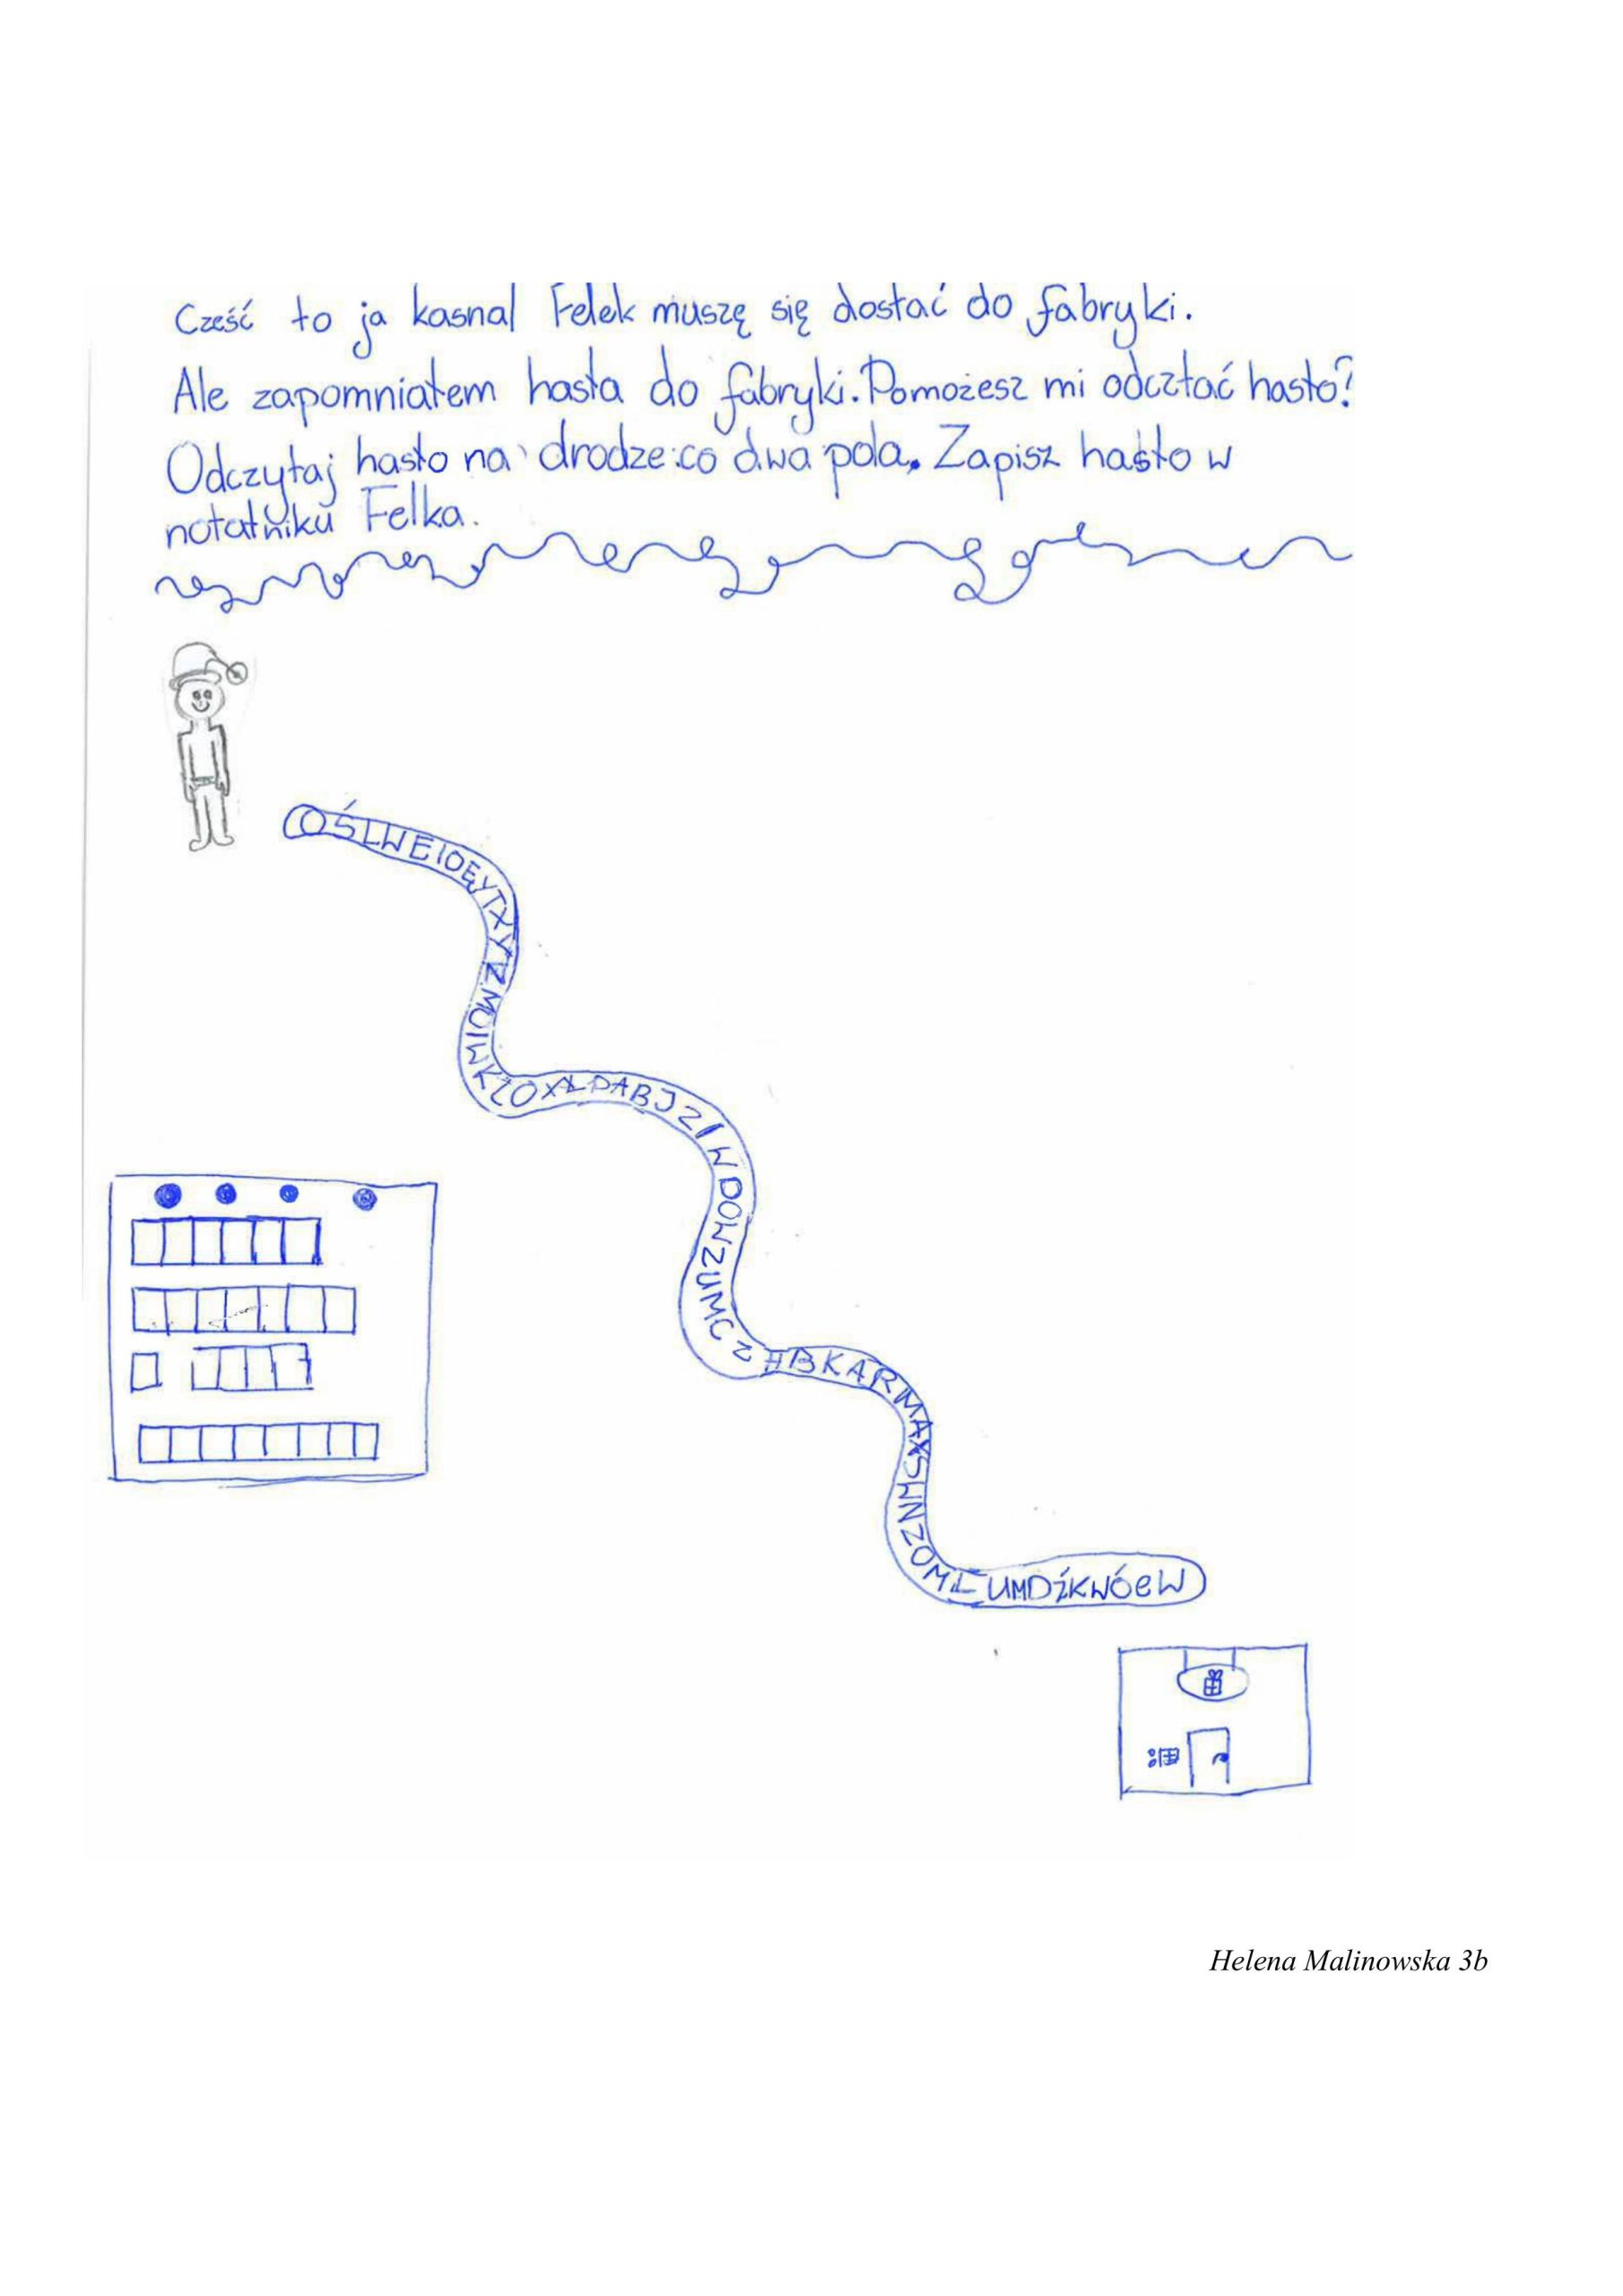 Cześć to ja kasnal Felek muszę się dostać do fabryki.
Ale zapomniałem hasła do fabryki. Pomożesz mi odcztać hasło?
Odczytaj hasło na drodze:co dwa pola. Zapisz hasło w
notatniku Felka.
OŚLWEIOĘYTXYZMOIWKŁOXŁDABJZIWDOWZUMCZ
HBKARMAXSWNZOMLUMDŹKWÓEW
Helena Malinowska 3b